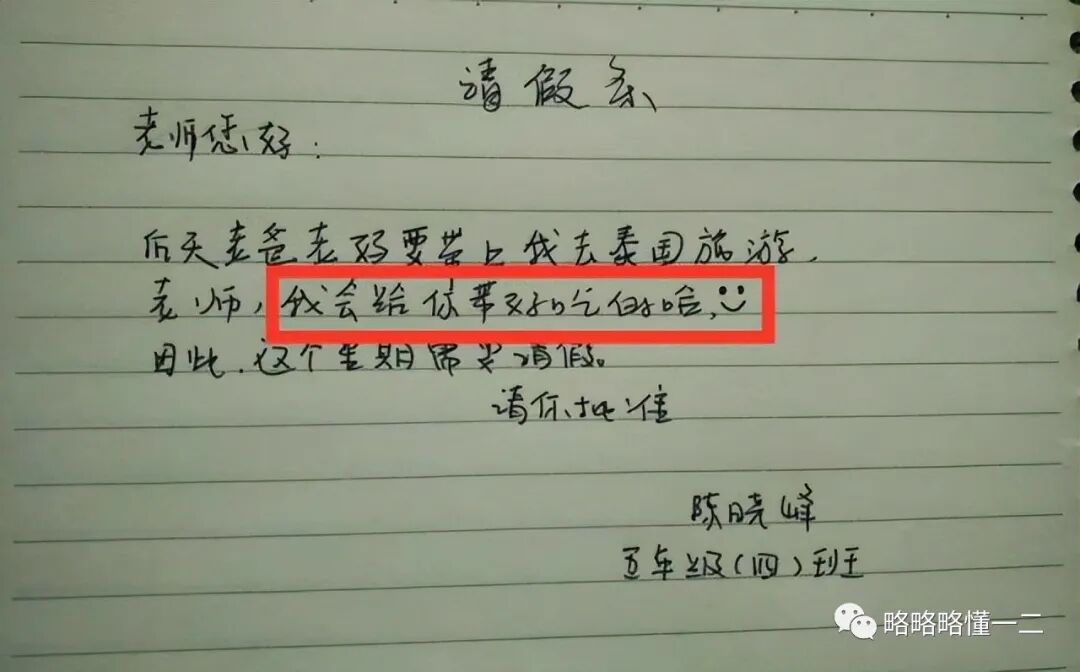 请假条
老师您好：
后天老爸老妈要带上我去泰国旅游.
老师，我会给你带好吃的哈,
因此.这个星期需要请假。
请你批准
陈晓峰
五年级(四)班
略略略懂一二